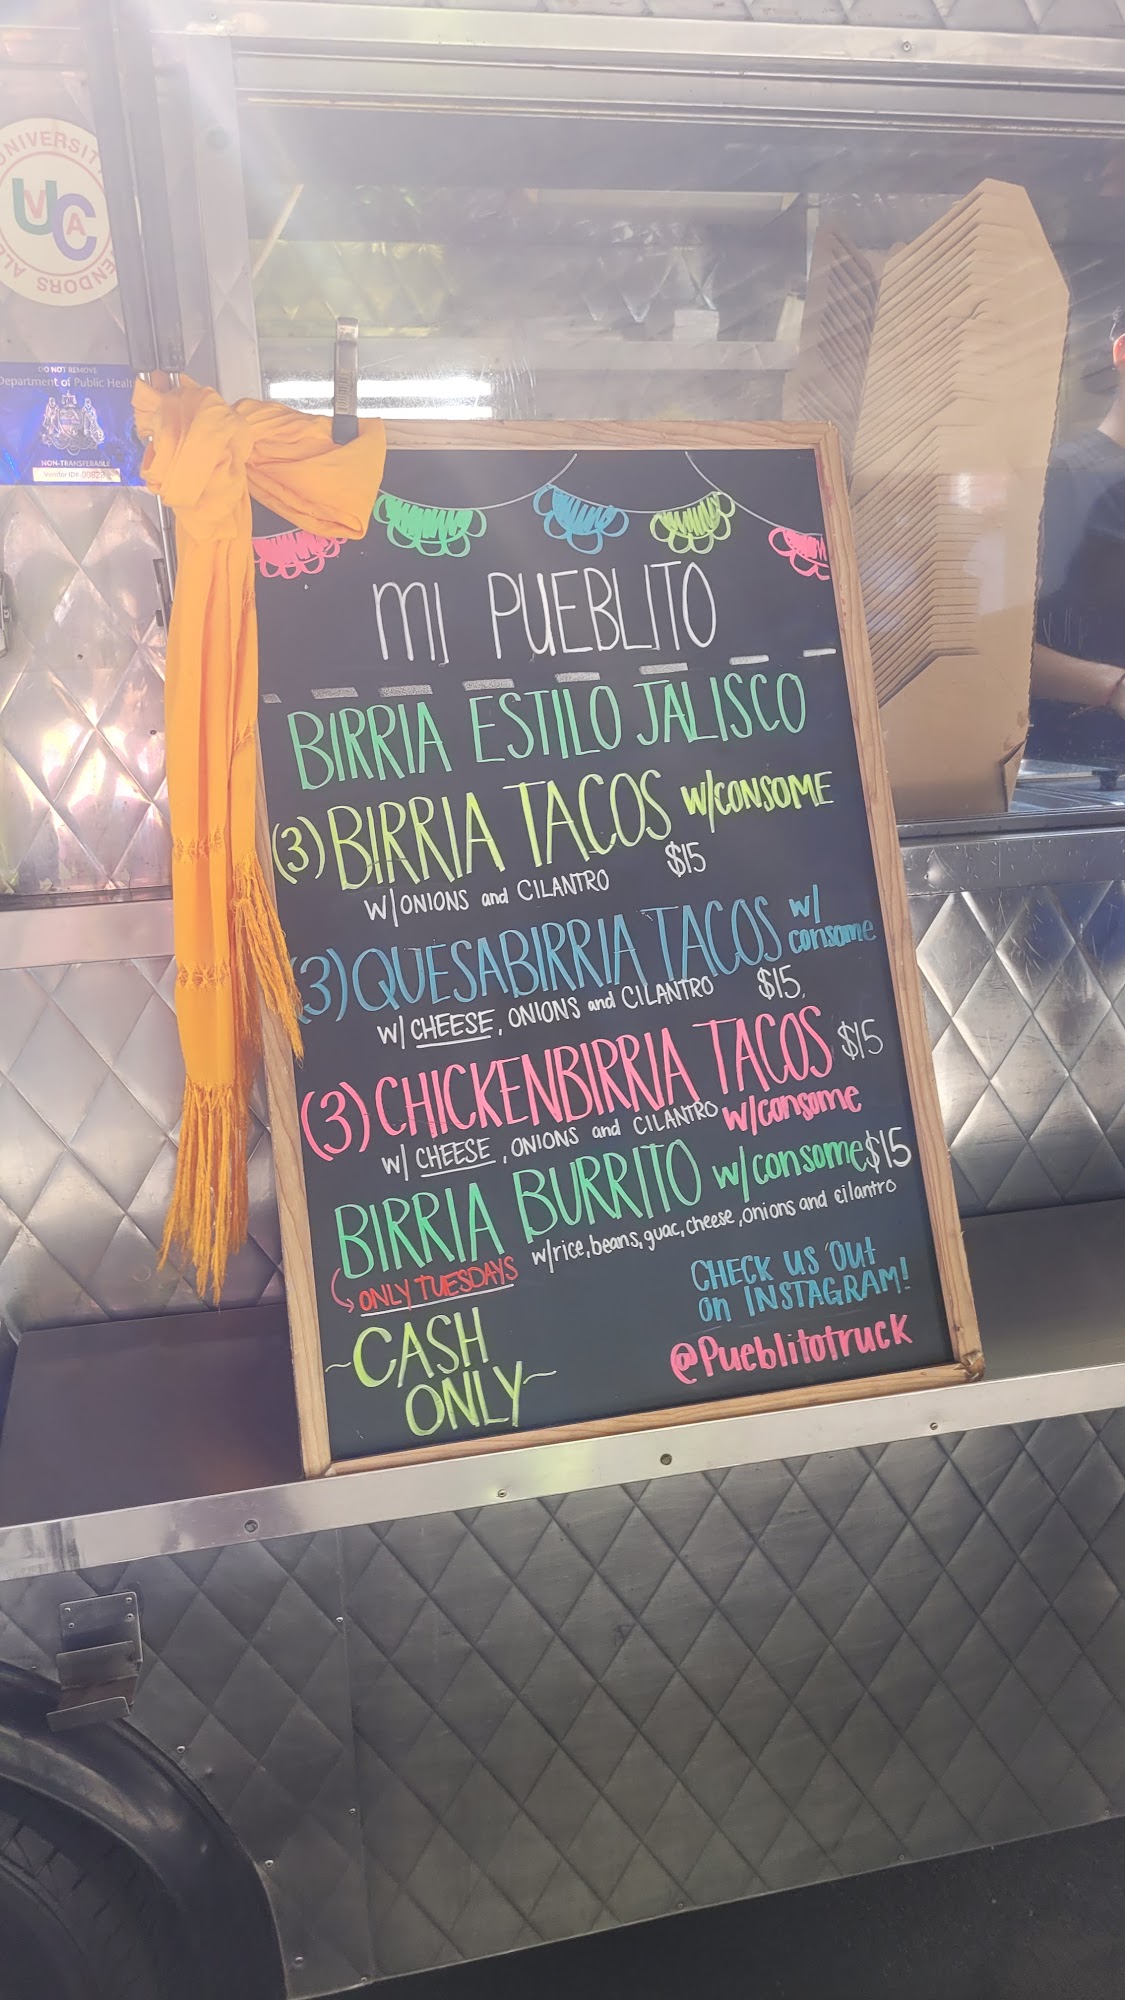 UNIVERSITY
UVCA
VENDORS ALL
DO NOT REMOVE
Department of Public Health
NON-TRANSFERABLE
Vendor ID#
MI PUEBLITO
BIRRIA ESTILO JALISCO
(3) BIRRIA TACOS w/CONSOME
W/ONIONS and CILANTRO $15
(3) QUESABIRRIA TACOS w/ consome
W/ CHEESE, ONIONS and CILANTRO $15
(3) CHICKENBIRRIA TACOS $15
W/ CHEESE, ONIONS and CILANTRO w/consome
BIRRIA BURRITO w/consome $15
w/rice, beans, guac, cheese, onions and cilantro
ONLY TUESDAYS
~CASH
ONLY~
CHECK US OUT
on INSTAGRAM!
@Pueblitotruck